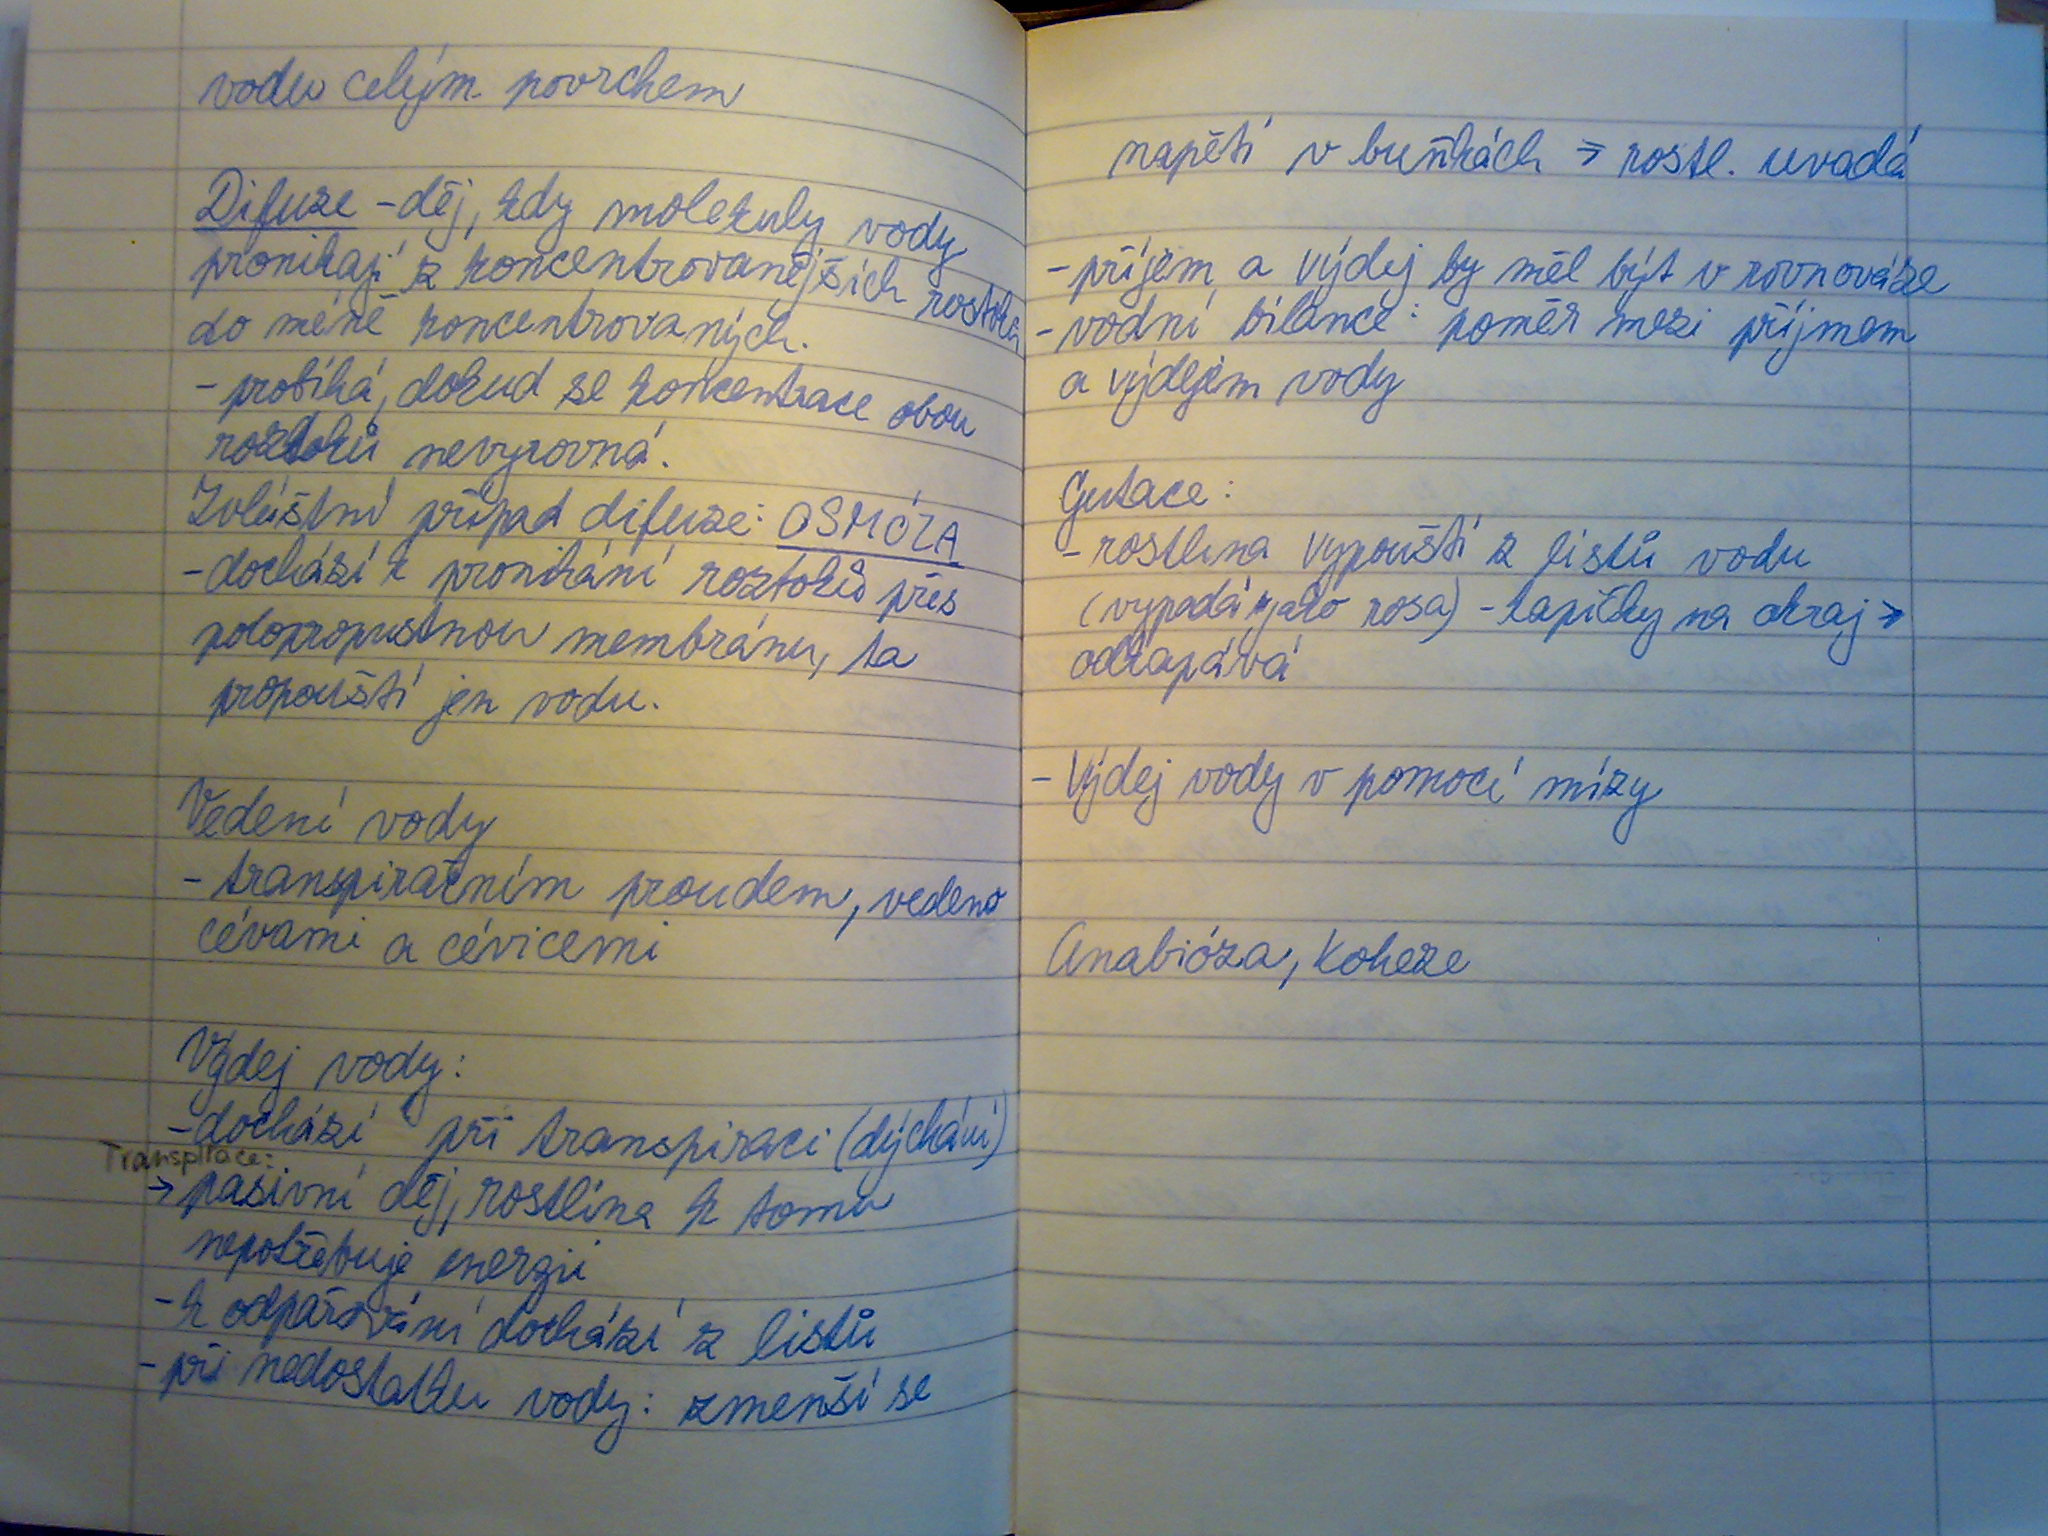 vodu celým povrchem
Difuze - děj, kdy molekuly vody
pronikají z koncentrovanějších roztoků
do méně koncentrovaných.
- probíhá, dokud se koncentrace obou
roztoků nevyrovná.
Zvláštní případ difuze: OSMÓZA
- dochází k pronikání roztoků přes
polopropustnou membránu, ta
propouští jen vodu.
Vedení vody
- transpiračním proudem, vedeno
cévami a cévicemi
Výdej vody:
- dochází při transpiraci (dýchání)
Transpirace:
→ pasivní děj, rostlina k tomu
nepotřebuje energii
- k odpařování dochází z listů
- při nedostatku vody: zmenší se
napětí v buňkách → rostl. uvadá
- příjem a výdej by měl být v rovnováze
- vodní bilance: poměr mezi příjmem
a výdejem vody
Gutace:
- rostlina vypouští z listů vodu
(vypadá jako rosa) - kapičky na okraj →
odkapává
- Výdej vody v pomocí mízy
Anabióza, Koheze